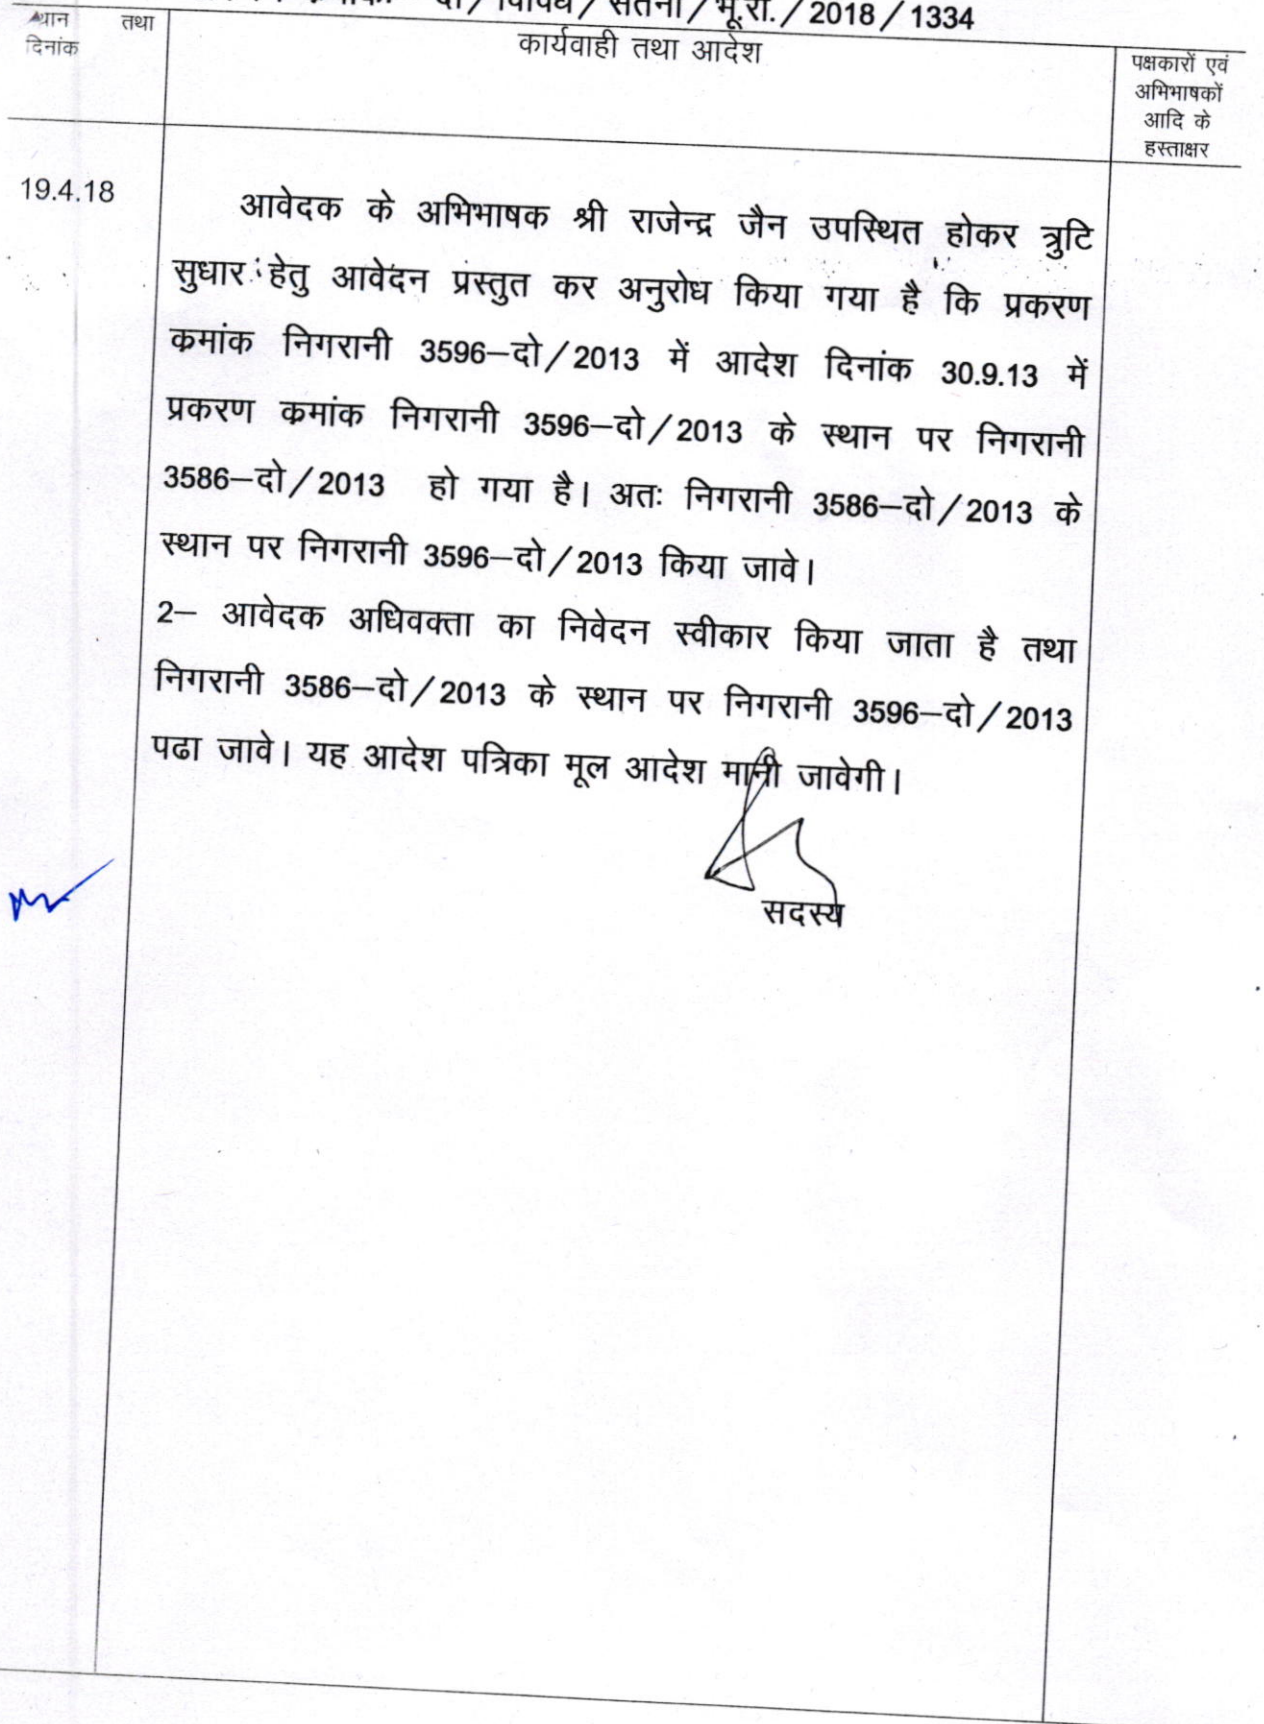 दो/विविध/सतना/भू.रा./2018/1334
स्थान तथा
दिनांक
कार्यवाही तथा आदेश
पक्षकारों एवं
अभिभाषकों
आदि के
हस्ताक्षर
19.4.18
आवेदक के अभिभाषक श्री राजेन्द्र जैन उपस्थित होकर त्रुटि
सुधार हेतु आवेदन प्रस्तुत कर अनुरोध किया गया है कि प्रकरण
कमांक निगरानी 3596–दो/2013 में आदेश दिनांक 30.9.13 में
प्रकरण कमांक निगरानी 3596–दो/2013 के स्थान पर निगरानी
3586–दो/2013 हो गया है। अतः निगरानी 3586–दो/2013 के
स्थान पर निगरानी 3596–दो/2013 किया जावे।
2– आवेदक अधिवक्ता का निवेदन स्वीकार किया जाता है तथा
निगरानी 3586–दो/2013 के स्थान पर निगरानी 3596–दो/2013
पढा जावे। यह आदेश पत्रिका मूल आदेश मानी जावेगी।
सदस्य